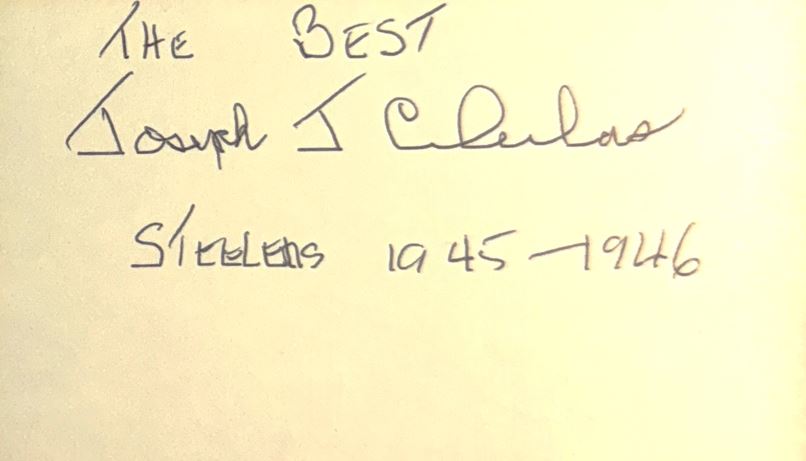 THE BEST
Joseph J Cibulas
STEELERS 1945-1946